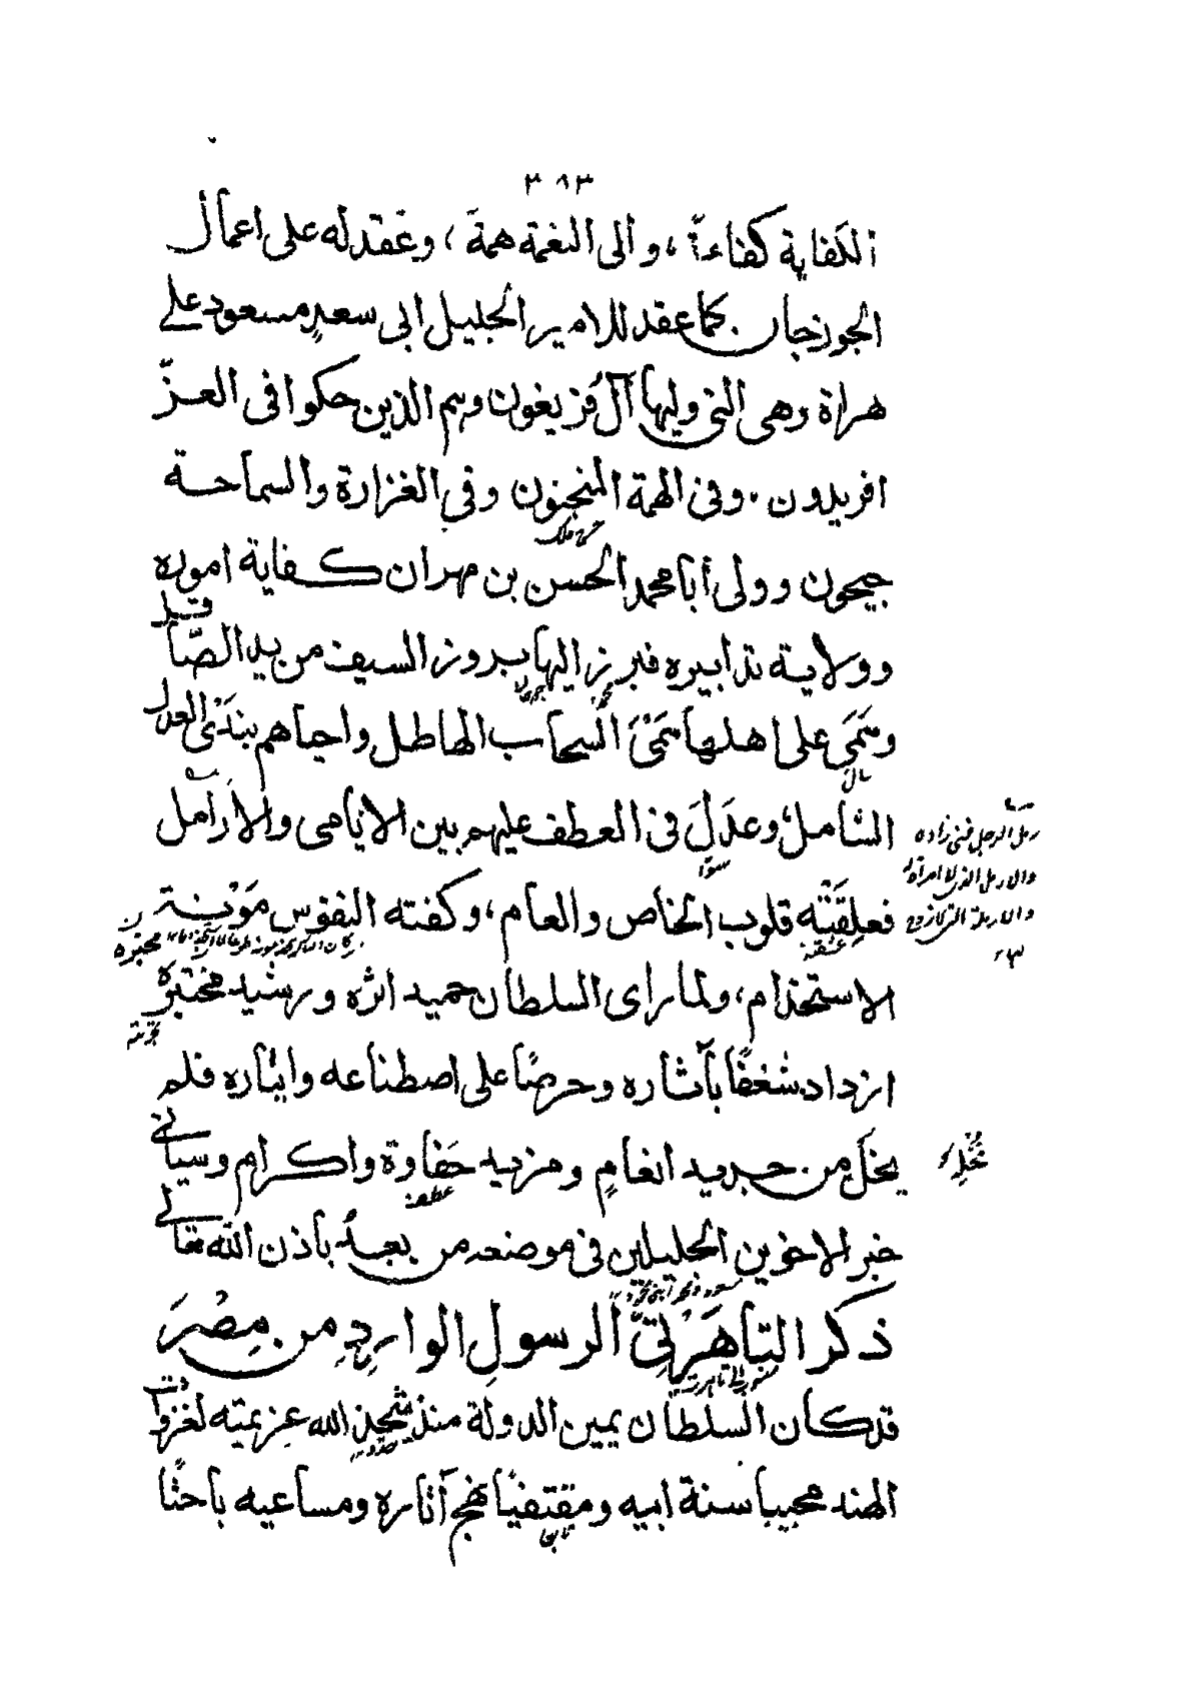 ٣٨٣
الكفاية كفاءة، والى النغمة همة، وعقد له على اعمال
الجوزجان. كما عقد للامير الجليل ابى سعيد مسعود على
هراة وهى التى وليها آل فريغون وهم الذين حكوا فى العز
افريدون. وفى الهمة المنجنون وفى الغزارة والسماحة
جيحون وولى أبا محمد الحسن بن مهران كفاية اموره
وولاية تدابيره فبرز اليها بروز السيف من يد الصّاقل
وهَمَى على اهلها هَمْىَ السحاب الهاطل واحياهم بندى العدل
الشامل، وعدَلَ فى العطف عليهم بين الايامى والارامل
رمل الرجل فنى زاده
والارمل الذى لا امرأة له
والارملة التى لا زوج
فعلِقَتْه قلوب الخاص والعام، وكفته النفوس مَؤنة
الاستخذام، ولما راى السلطان حميد اثره ورشيد مختبره
ازداد شغفًا بآثاره وحرصًا على اصطناعه وايثاره فلم
يخل من جديد انعامٍ ومزيد حَفاوة واكرام وسياتى
خبر الاخوين الجليلين فى موضعه من بعد بأذن الله تعالى
ذكر التاهَرْتِىّ الرسول الواردِ من مِصْرَ
قد كان السلطان يمين الدولة منذ شحذ الله عزيمته لغزوات
الهند محييا سنة ابيه ومقتفيًا نهج آثاره ومساعيه باحثًا
تابعا